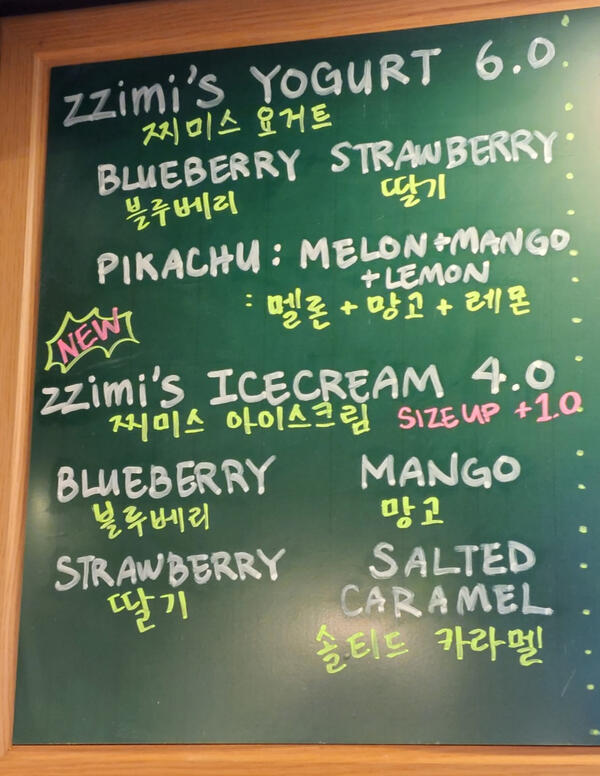 zzimi's YOGURT 6.0
찌미스 요거트
BLUEBERRY STRAWBERRY
블루베리 딸기
PIKACHU : MELON+MANGO
+LEMON
: 멜론 + 망고 + 레몬
NEW
zzimi's ICECREAM 4.0
찌미스 아이스크림 SIZE UP +1.0
BLUEBERRY MANGO
블루베리 망고
STRAWBERRY SALTED
딸기 CARAMEL
솔티드 카라멜